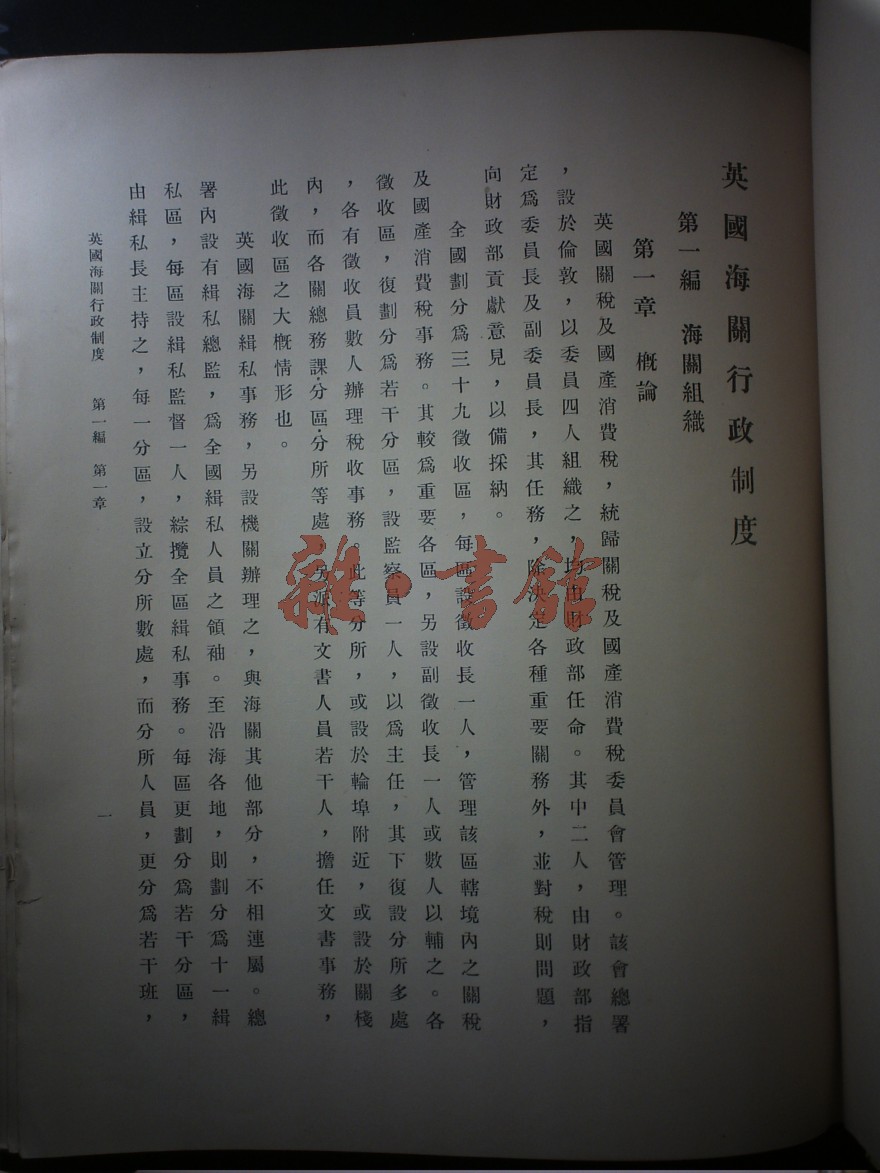 英國海關行政制度
第一編 海關組織
第一章 概論
英國關稅及國產消費稅，統歸關稅及國產消費稅委員會管理。該會總署
，設於倫敦，以委員四人組織之，均由財政部任命。其中二人，由財政部指
定爲委員長及副委員長，其任務，除決定各種重要關務外，並對稅則問題，
向財政部貢獻意見，以備採納。
全國劃分爲三十九徵收區，每區設徵收長一人，管理該區轄境內之關稅
及國產消費稅事務。其較爲重要各區，另設副徵收長一人或數人以輔之。各
徵收區，復劃分爲若干分區，設監察員一人，以爲主任，其下復設分所多處
，各有徵收員數人辦理稅收事務。此等分所，或設於輪埠附近，或設於關棧
內，而各關總務課·分區·分所等處，另派有文書人員若干人，擔任文書事務，
此徵收區之大概情形也。
英國海關緝私事務，另設機關辦理之，與海關其他部分，不相連屬。總
署內設有緝私總監，爲全國緝私人員之領袖。至沿海各地，則劃分爲十一緝
私區，每區設緝私監督一人，綜攬全區緝私事務。每區更劃分爲若干分區，
由緝私長主持之，每一分區，設立分所數處，而分所人員，更分爲若干班，
英國海關行政制度 第一編 第一章
一
雜·書館